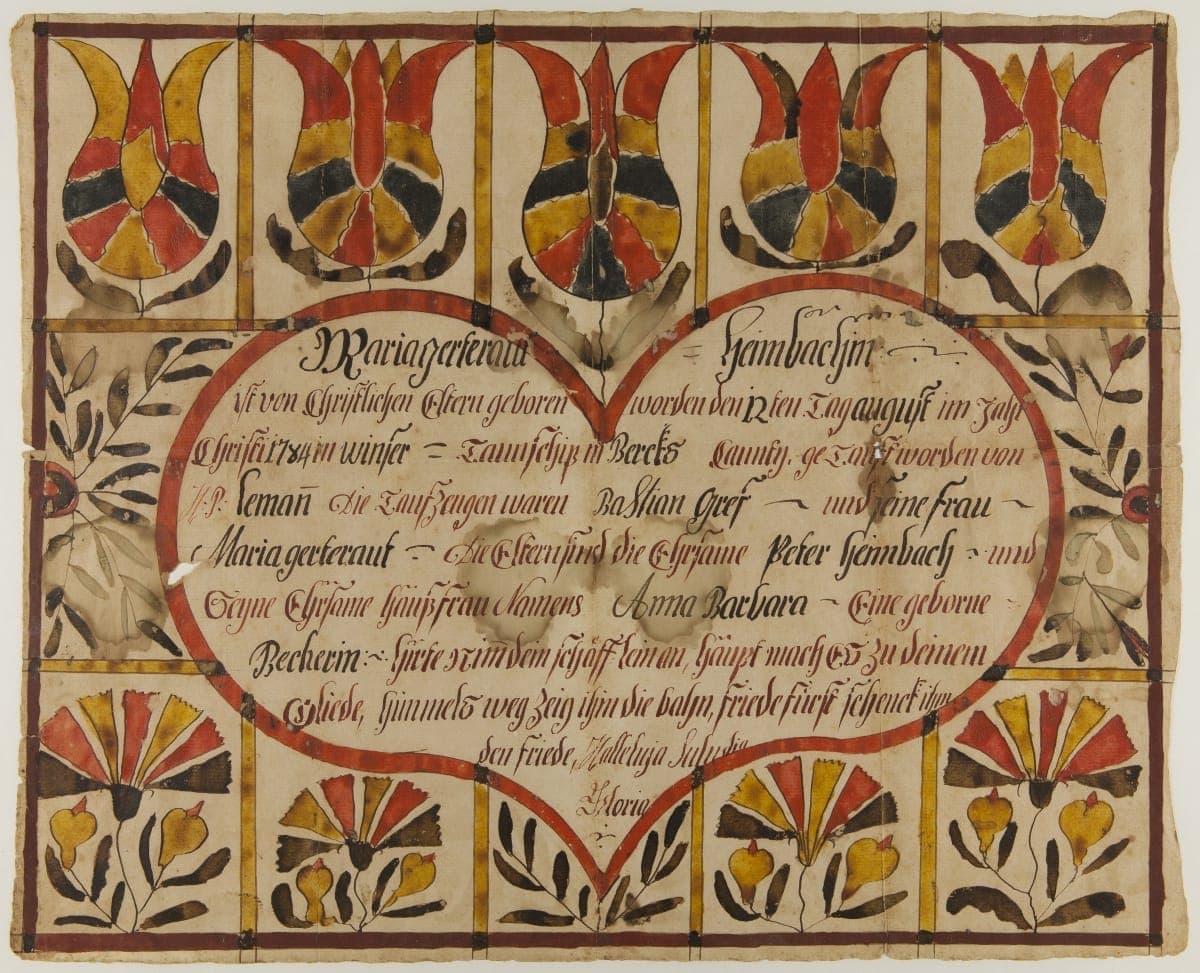 Mariagerteraut = Heimbachin
ist von Christlichen Eltern geboren worden den 12ten Tag august im Jahr
Christi 1784 in winser = Taunschip in Bercks Caunty. getauft worden von
H. P. lemañ Die Taufzeugen waren Bastian Gref ~ und seine frau ~
Maria gerteraut = Die Eltern sind die Ehrsame Peter heimbach ~ und
Seyne Ehrsame häußfrau Namens Anna Barbara ~ Eine geborne ~
Becherin ~ hirte nim dein schäfflein an, häupt mach Es zu deinem
Gliede, himmels weg zeig ihm die bahn, friede fürst schenck ihm
den friede, Halleluja
Gloria